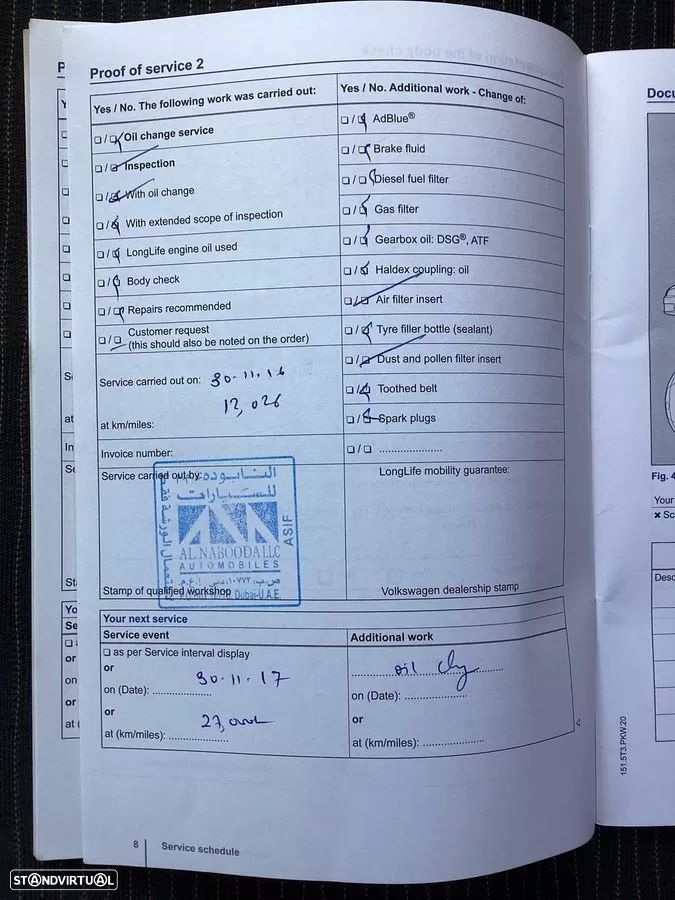 Proof of service 2
Yes / No. The following work was carried out:
Oil change service
Inspection
With oil change
With extended scope of inspection
LongLife engine oil used
Body check
Repairs recommended
Customer request
(this should also be noted on the order)
Service carried out on: 30.11.16
12,026
at km/miles:
Invoice number:
Service carried out by:
Yes / No. Additional work - Change of:
AdBlue®
Brake fluid
Diesel fuel filter
Gas filter
Gearbox oil: DSG®, ATF
Haldex coupling: oil
Air filter insert
Tyre filler bottle (sealant)
Dust and pollen filter insert
Toothed belt
Spark plugs
....................
LongLife mobility guarantee:
النابوده
للسيارات
AL NABOODA LLC
AUTOMOBILES
Dubai-U.A.E.
ASIF
Stamp of qualified workshop
Volkswagen dealership stamp
Your next service
Service event
as per Service interval display
or
30.11.17
on (Date): ....................
or
at (km/miles): ....................
Additional work
oil
on (Date): ....................
or
at (km/miles): ....................
151.5T3.PKW.20
8
Service schedule
Docu
Fig. 4
Your
× Sc
Desc
STANDVIRTUAL